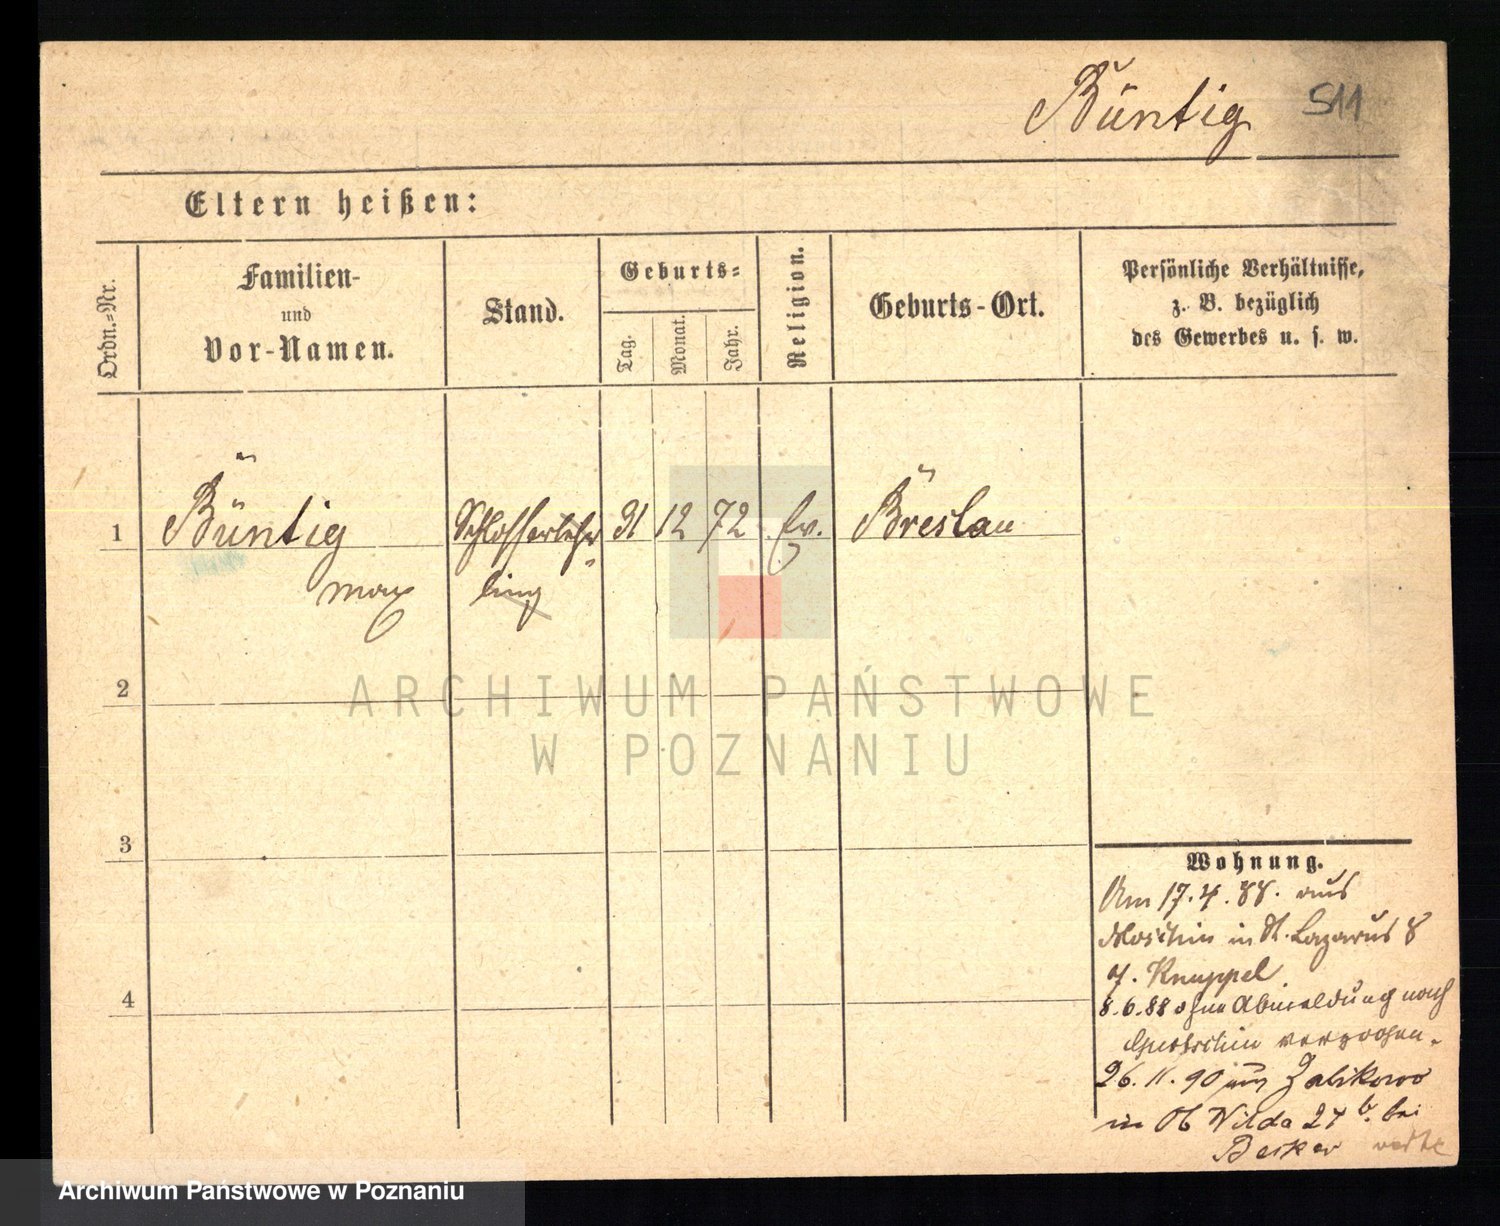 Büntig 511
Eltern heißen:
Ordn.-Nr.
Familien-
und
Vor-Namen.
Stand.
Geburts-
Tag.
Monat.
Jahr.
Religion.
Geburts-Ort.
Persönliche Verhältnisse,
z. B. bezüglich
des Gewerbes u. s. w.
1 Büntig Schlosserlehr 31 12 72 Ev. Breslau
Max ling
2
3
4
Wohnung.
Am 17.4.88. aus
Moschin in St. Lazarus 8
Knuppel
8.6.88 ohne Abmeldung nach
verzogen.
26.11.90 aus Zabikowo
in Ob Wilda 27 b. bei
Becker
ARCHIWUM PAŃSTWOWE
W POZNANIU
Archiwum Państwowe w Poznaniu